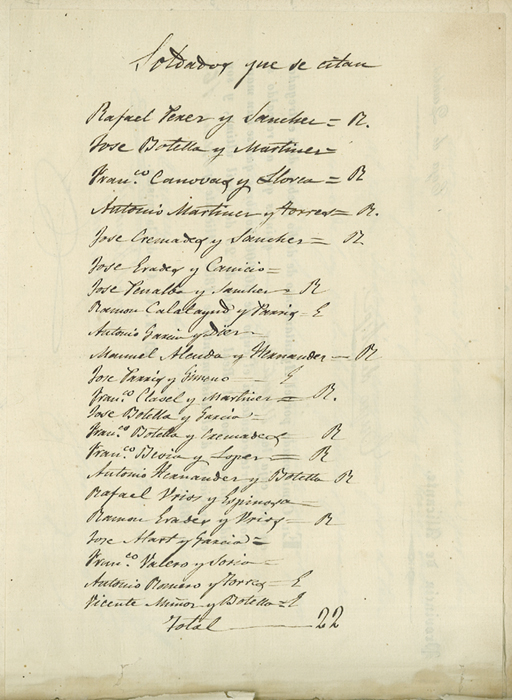 Soldados que se citan
Rafael Perez y Sanchez = R.
Jose Botella y Martinez
Fran.co Canovas y Llorca = R
Antonio Martinez y Torres = R.
Jose Cremades y Sanchez = R.
Jose Erades y Canicio =
Jose Penalba y Sanchez R
Ramon Calatayud y Parris - E
Antonio Garcia y Diez
Manuel Alenda y Hernandez - R
Jose Parris y Gimeno - E
Fran.co Clasel y Martinez = R.
Jose Botella y Garcia =
Fran.co Botella y Cremades = R
Fran.co Bevia y Lopez = R
Antonio Hernandez y Botella R
Rafael Vrios y Espinosa
Ramon Erades y Vrios - R
Jose Mart y Garcia =
Fran.co Valero y =
Antonio Romero y Torres = E
Vicente Miñor y Botella = E
Total 22